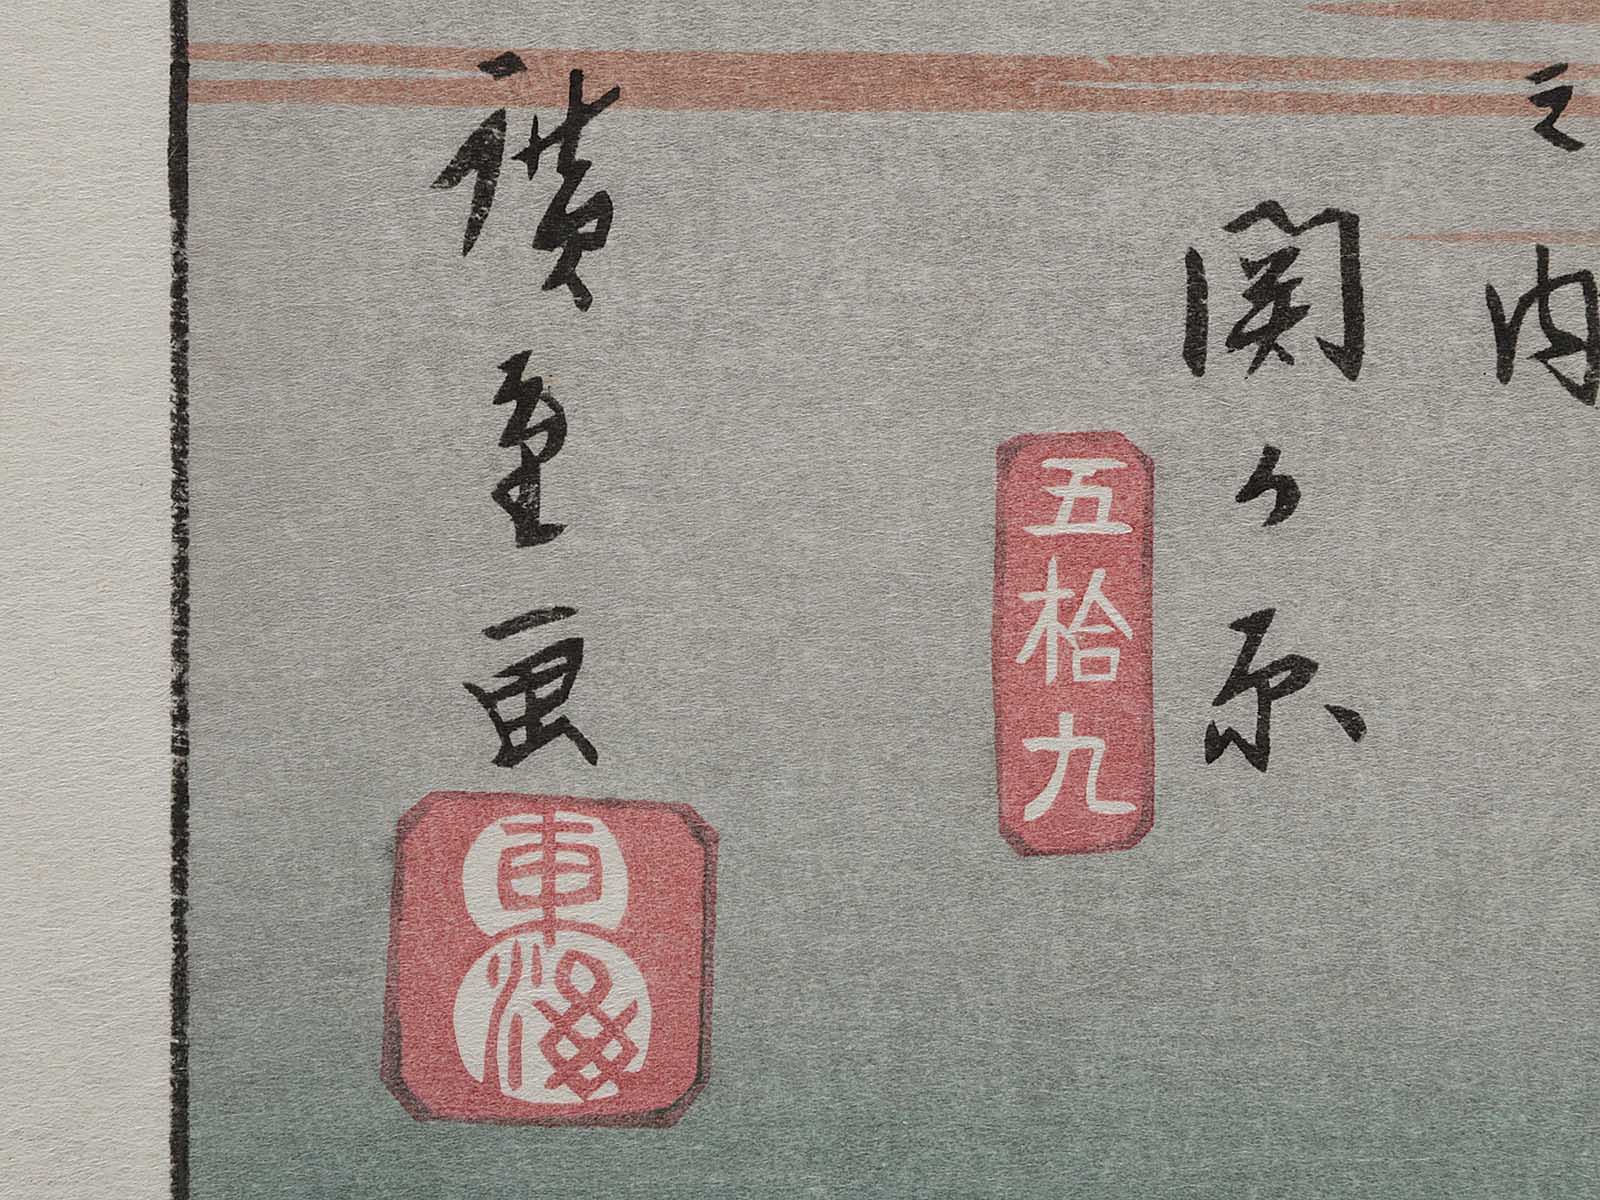 之内
関ケ原
五拾九
廣重画
東海